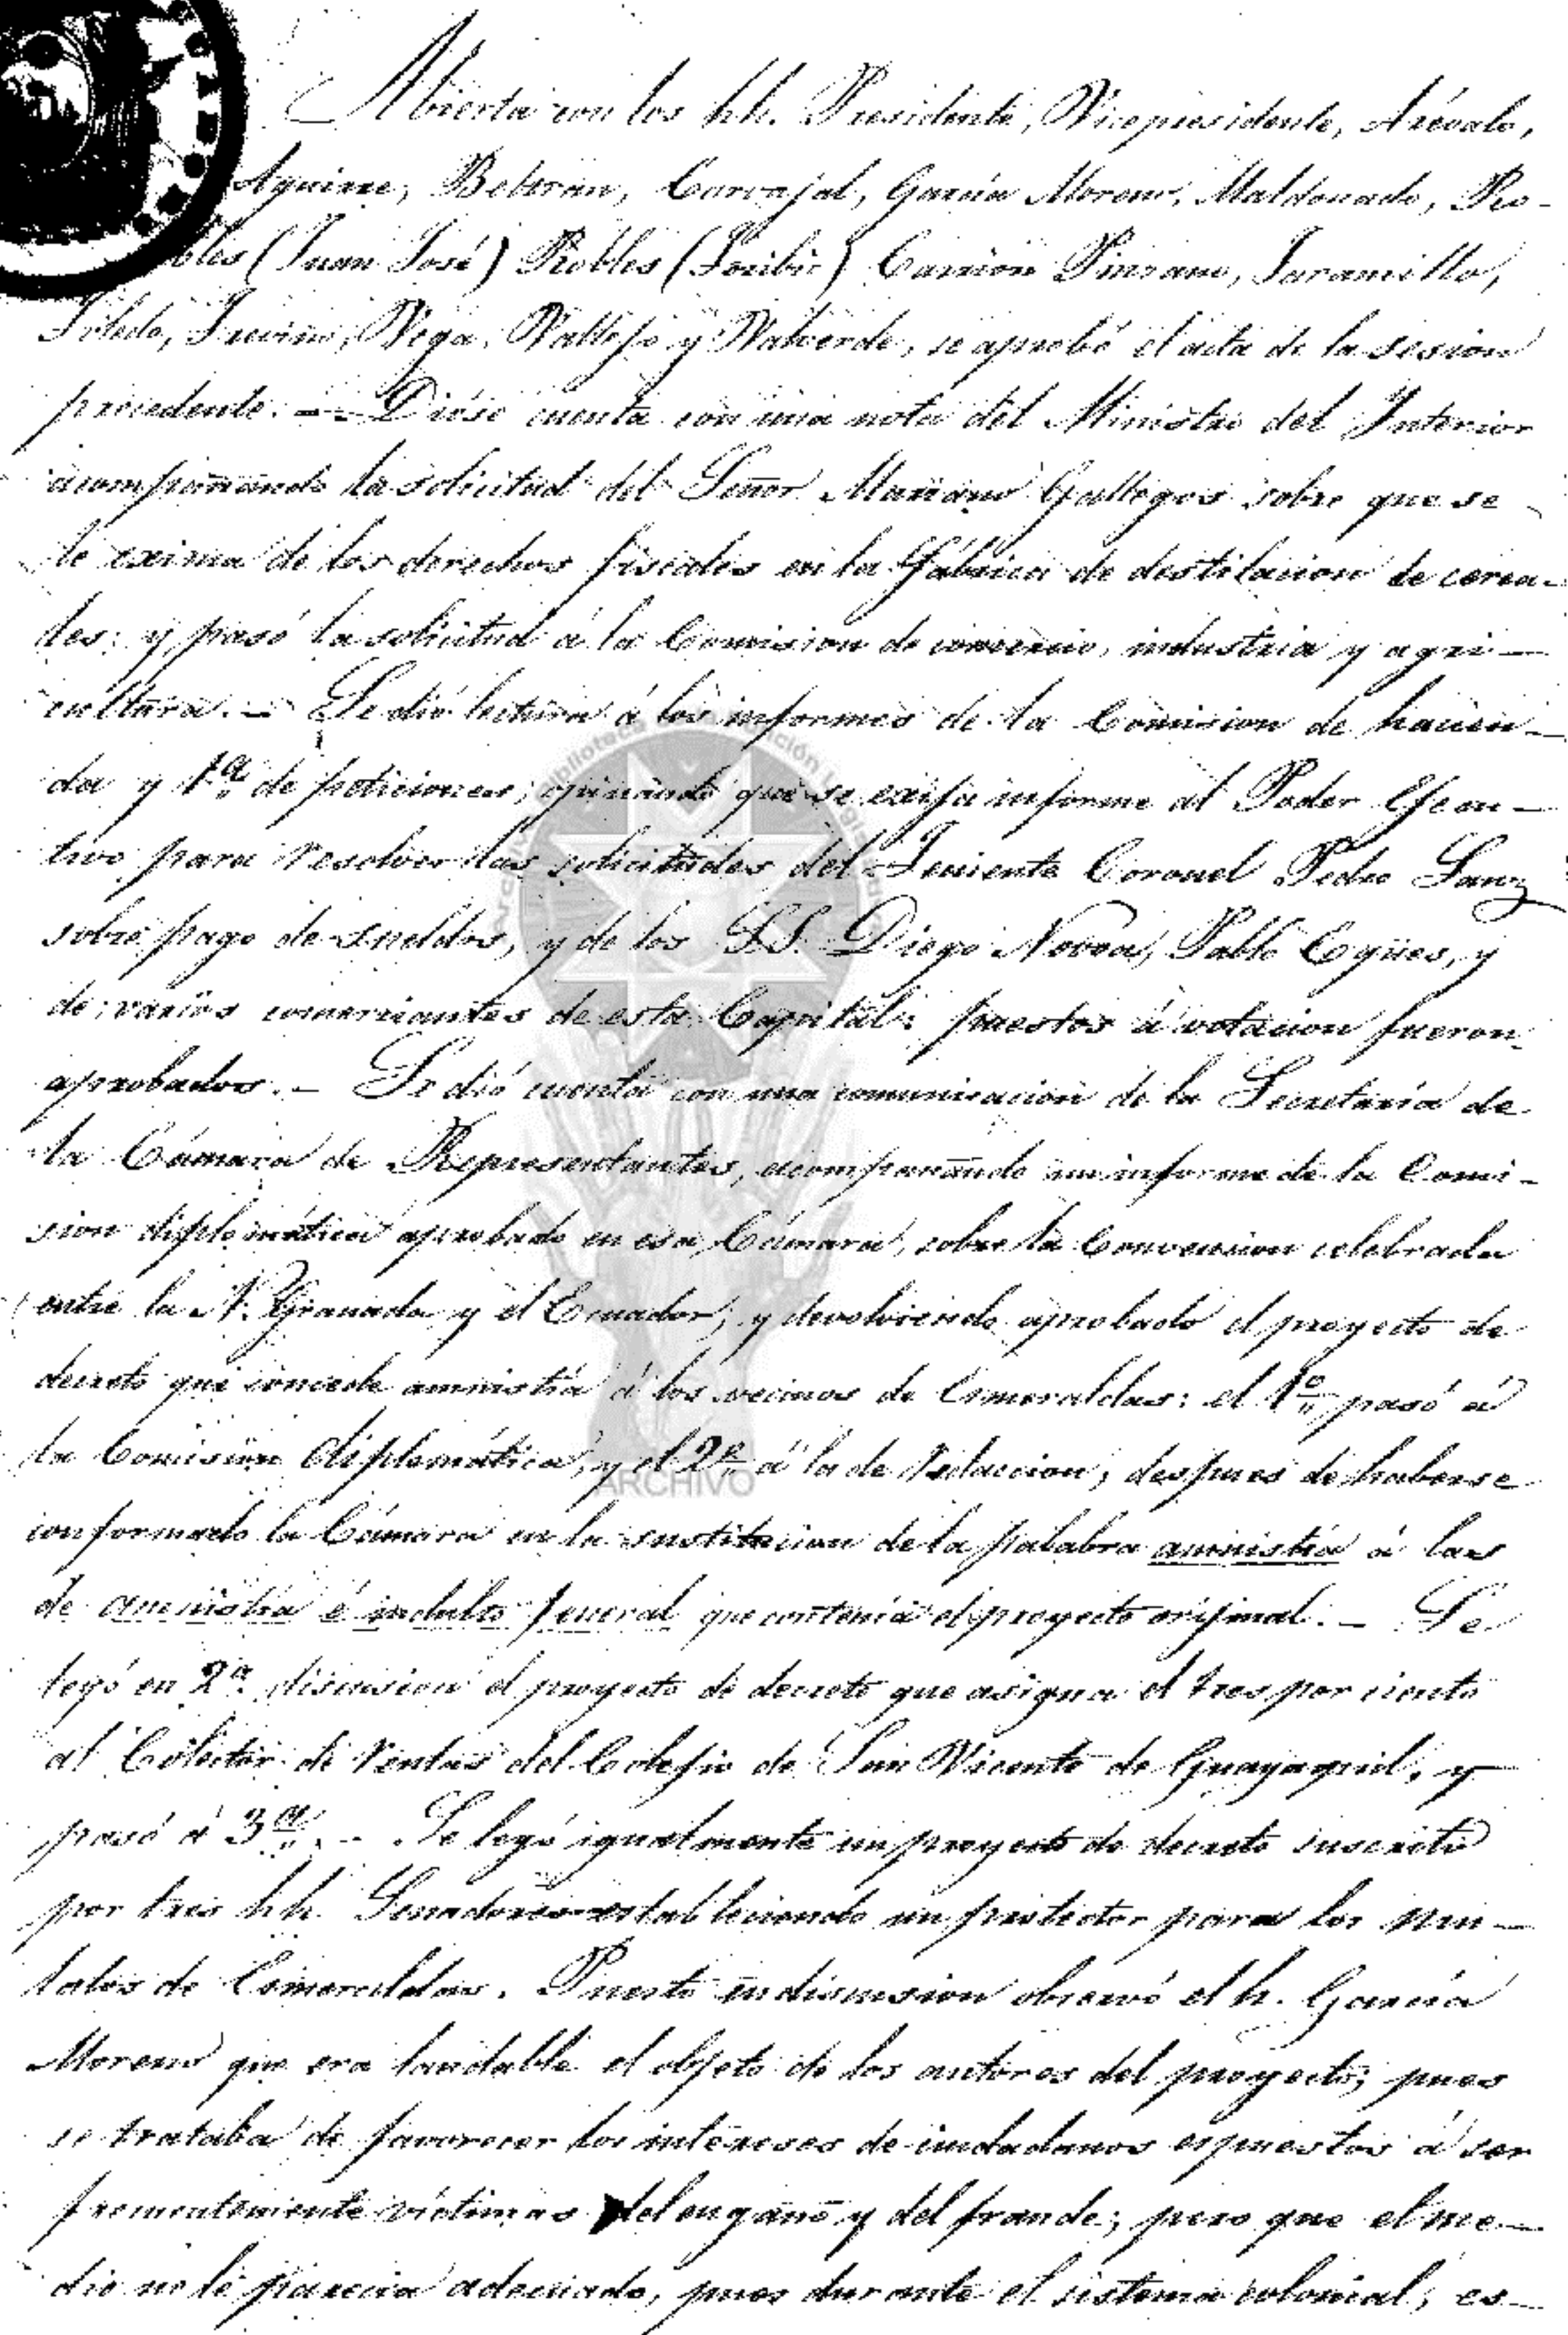 Abierta con los hh. Presidente, Vicepresidente, Arévalo,
Aguirre, Beltran, Carvajal, García Moreno, Maldonado, Ro-
bles (Juan José) Robles (Toribio) Carrion Pinzano, Jaramillo,
Toledo, Treviño, Vega, Vallejo y Valverde, se aprobó el acta de la sesion
precedente. — Dióse cuenta con una nota del Ministro del Interior
acompañando la solicitud del Señor Mariano Gallegos sobre que se
le exima de los derechos fiscales en la fábrica de destilacion de cerea-
les: y pasó la solicitud á la Comision de comercio, industria y agri-
cultura. — Se dió lectura á los informes de la Comision de hacien-
da y 1ª de peticiones, opinando que se exija informe al Poder Ejecu-
tivo para resolver las solicitudes del Teniente Coronel Pedro Sanz
sobre pago de sueldos, y de los S.S. Diego Novoa, Pablo Egües, y
de varios comerciantes de esta Capital: puestos á votacion fueron
aprobados. — Se dió cuenta con una comunicacion de la Secretaría de
la Cámara de Representantes, acompañando un informe de la Comi-
sion diplomática aprobado en esa Cámara, sobre la Convencion celebrada
entre la N. Granada y el Ecuador; y devolviendo aprobado el proyecto de
decreto que concede amnistía á los vecinos de Esmeraldas: el 1º pasó á
la Comision diplomática, y el 2º á la de redaccion, despues de haberse
conformado la Cámara en la sustitucion de la palabra amnistía á las
de amnistía é indulto jeneral que contenia el proyecto orijinal. — Se
leyó en 2ª discusion el proyecto de decreto que asigna el tres por ciento
al Colector de rentas del Colejio de San Vicente de Guayaquil, y
pasó á 3ª. — Se leyó igualmente un proyecto de decreto suscrito
por tres hh. Senadores estableciendo un protector para los
de Esmeraldas. Puesto en discusion observó el h. García
Moreno que era laudable el objeto de los autores del proyecto; pues
se trataba de favorecer los intereses de ciudadanos espuestos á ser
frecuentemente víctimas del engaño y del fraude; pero que el me-
dio no le parecia adecuado, pues durante el sistema colonial, es-
Biblioteca
ARCHIVO